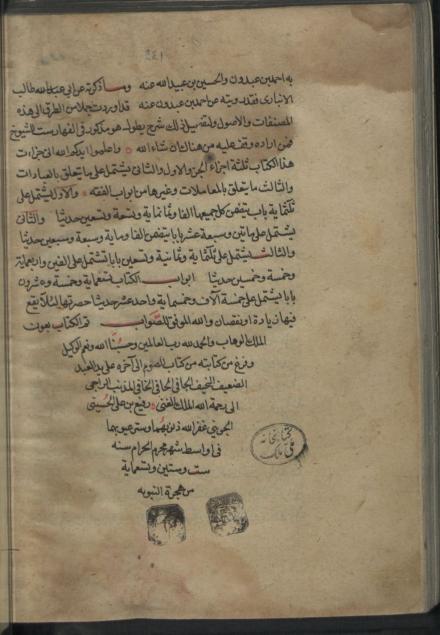 ٢٤١
به احمد بن عبدون والحسین بن عبیدالله عنه وما ذکرته عن ابی عبدالله طالب
الانباری فقد رویته عن احمد بن عبدون عنه قد اوردت جملا من الطرق الی هذه
المصنفات والاصول ولتفصیل ذلک شرح یطول هو مذکور فی الفهارست للشیوخ
فمن اراده وقف علیه من هناک ان شاء الله واعلموا ایدکم الله انی جزات
هذا الکتاب ثلثة اجزاء الجزء الاول والثانی یشتمل علی ما یتعلق بالعبادات
والثالث یتعلق بالمعاملات وغیرها من ابواب الفقه والاول یشتمل علی
ثلثمایة باب یتضمن کل جمیعها الفا وثمانمایة وتسعة وتسعین حدیثا والثانی
یشتمل علی ماتین وسبعة عشر بابا یتضمن الفا ومایة وسبعة وسبعین حدیثا
والثالث یشتمل علی ثلثمایة وثمانیة وتسعین بابا تشتمل علی الفین واربعمایة
وخمسة وخمسین حدیثا ابواب الکتاب تسعمایة وخمسة وعشرون
بابا یشتمل علی خمسة آلاف وخمسمایة واحد عشر حدیثا حصرتها لئلا یقع
فیها زیادة او نقصان والله الموفق للصواب تم الکتاب بعون
الملک الوهاب والحمد لله رب العالمین وحسبنا الله ونعم الوکیل
وفرغ من کتابته من کتاب الصوم الی آخره علی ید العبد
الضعیف النحیف الجافی المذنب الراجی
الی رحمة الله الملک الغنی رفیع بن علی الحسینی
غفر الله ذنوبهما وستر عیوبهما
فی اواسط شهر محرم الحرام سنه
ست وستین وتسعمایة
من هجرة النبویه
کتابخانه
ملی ملک